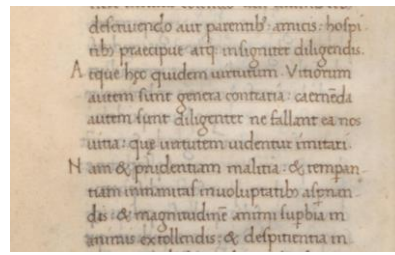 deserviendo aut parentib; amicis. hospi
tib; praecipue atq; insigniter diligendis.
Atque hęc quidem virtutum. Vitiorum
autem sunt genera contraria. cernēda
autem sunt diligenter ne fallant ea nos
vitia. quę virtutem videntur imitari.
Nam & prudentiam malitia. & temperan
tiam inmanitas involuptatib; aspernan
dis. & magnitudinē animi supbia in
animis extollendis. & despitientia in